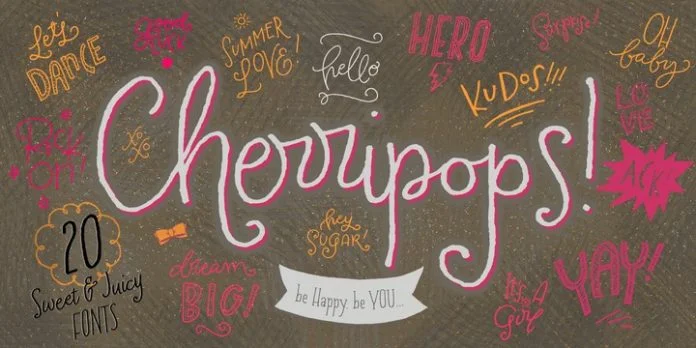 Let's
DANCE
SUMMER
LOVE!
hello
HERO
Surprise!
OH
baby
KUDOS!!!
LO
VE
ROCK
ON!
XO
XO
Cherripops!
20
Sweet & Juicy
FONTS
hey
SUGAR!
dream
BIG!
be Happy. be YOU...
It's A
Guy
YAY!